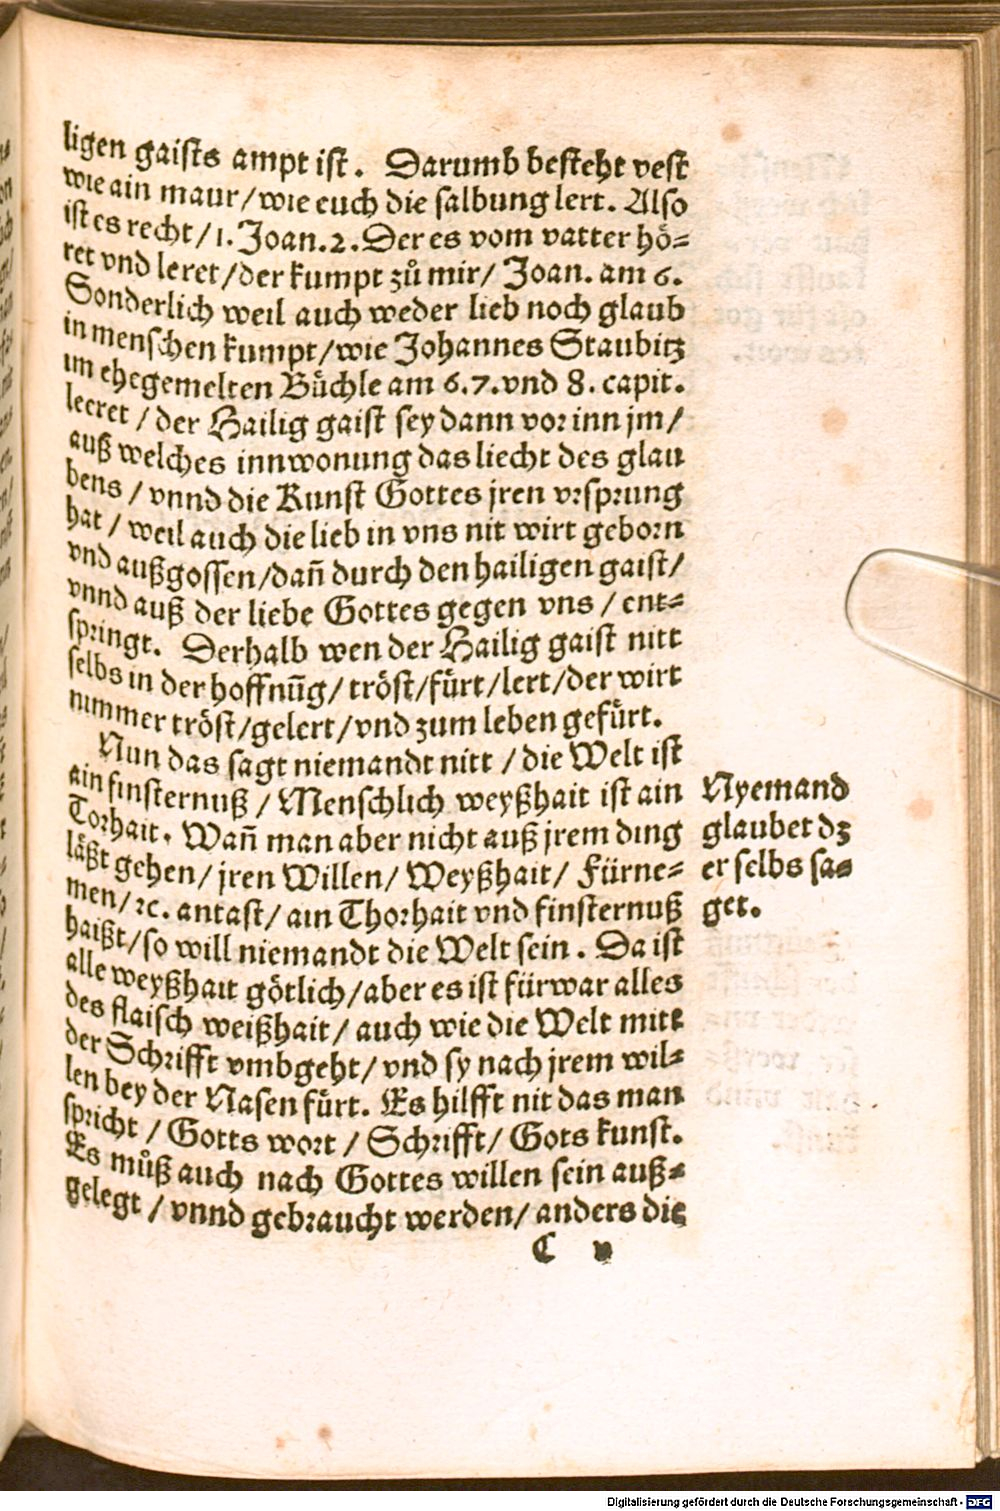 ligen gaists ampt ist. Darumb besteht vest
wie ain maur/wie euch die salbung lert. Also
ist es recht/1. Joan.2. Der es vom vatter hö-
ret vnd leret/der kumpt zů mir/ Joan. am 6.
Sonderlich weil auch weder lieb noch glaub
in menschen kumpt/wie Johannes Staubitz
im ehegemelten Büchle am 6.7.vnd 8. capit.
leeret / der Hailig gaist sey dann vor inn jm/
auß welches innwonung das liecht des glau
bens / vnnd die Kunst Gottes jren vrsprung
hat / weil auch die lieb in vns nit wirt geborn
vnd außgossen/dañ durch den hailigen gaist/
vnnd auß der liebe Gottes gegen vns / ent-
springt. Derhalb wen der Hailig gaist nitt
selbs in der hoffnūg/ tröst/fürt/lert/der wirt
nimmer tröst/gelert/vnd zum leben gefürt.
Nun das sagt niemandt nitt / die Welt ist
ain finsternuß / Menschlich weyßhait ist ain
Torhait. Wañ man aber nicht auß jrem ding
läßt gehen/ jren Willen/ Weyßhait/ Fürne-
men/ꝛc. antast/ ain Thorhait vnd finsternuß
haißt/so will niemandt die Welt sein. Da ist
alle weyßhait götlich/aber es ist fürwar alles
des flaisch weißhait/ auch wie die Welt mitt
der Schrifft vmbgeht/ vnd sy nach jrem wil-
len bey der Nasen fürt. Es hilfft nit das man
spricht / Gotts wort / Schrifft/ Gots kunst.
Es můß auch nach Gottes willen sein auß-
gelegt / vnnd gebraucht werden/ anders die
C v
Nyemand
glaubet dz
er selbs sa-
get.
Digitalisierung gefördert durch die Deutsche Forschungsgemeinschaft - DFG